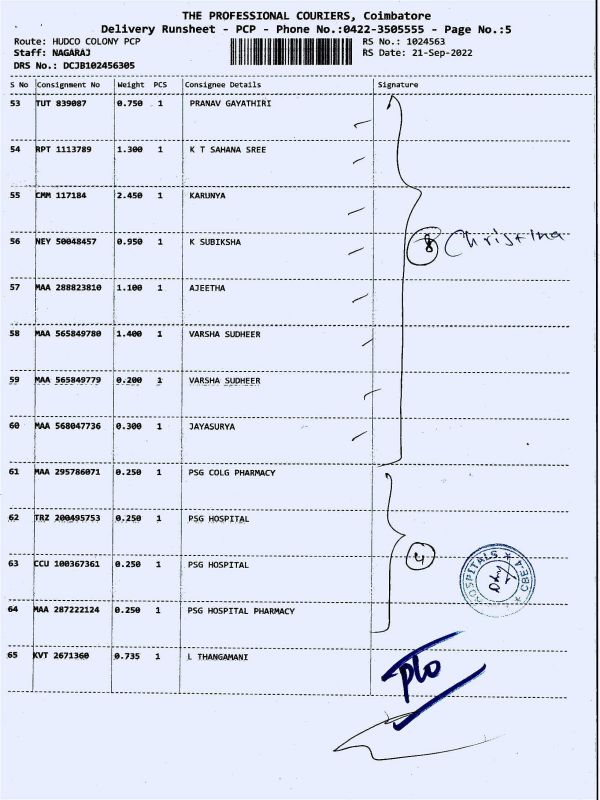 THE PROFESSIONAL COURIERS, Coimbatore
Delivery Runsheet - PCP - Phone No.:0422-3505555 - Page No.:5
Route: HUDCO COLONY PCP RS No.: 1024563
Staff: NAGARAJ RS Date: 21-Sep-2022
DRS No.: DCJB102456305
S No Consignment No Weight PCS Consignee Details Signature
53 TUT 839087 0.750 1 PRANAV GAYATHIRI
54 RPT 1113789 1.300 1 K T SAHANA SREE
55 CMM 117184 2.450 1 KARUNYA
56 NEY 50048457 0.950 1 K SUBIKSHA 8 Christina
57 MAA 288823810 1.100 1 AJEETHA
58 MAA 565849780 1.400 1 VARSHA SUDHEER
59 MAA 565849779 0.200 1 VARSHA SUDHEER
60 MAA 568047736 0.300 1 JAYASURYA
61 MAA 295786071 0.250 1 PSG COLG PHARMACY
62 TRZ 200495753 0.250 1 PSG HOSPITAL
63 CCU 100367361 0.250 1 PSG HOSPITAL 4
HOSPITALS * CBE-4 *
64 MAA 287222124 0.250 1 PSG HOSPITAL PHARMACY
65 KVT 2671360 0.735 1 L THANGAMANI